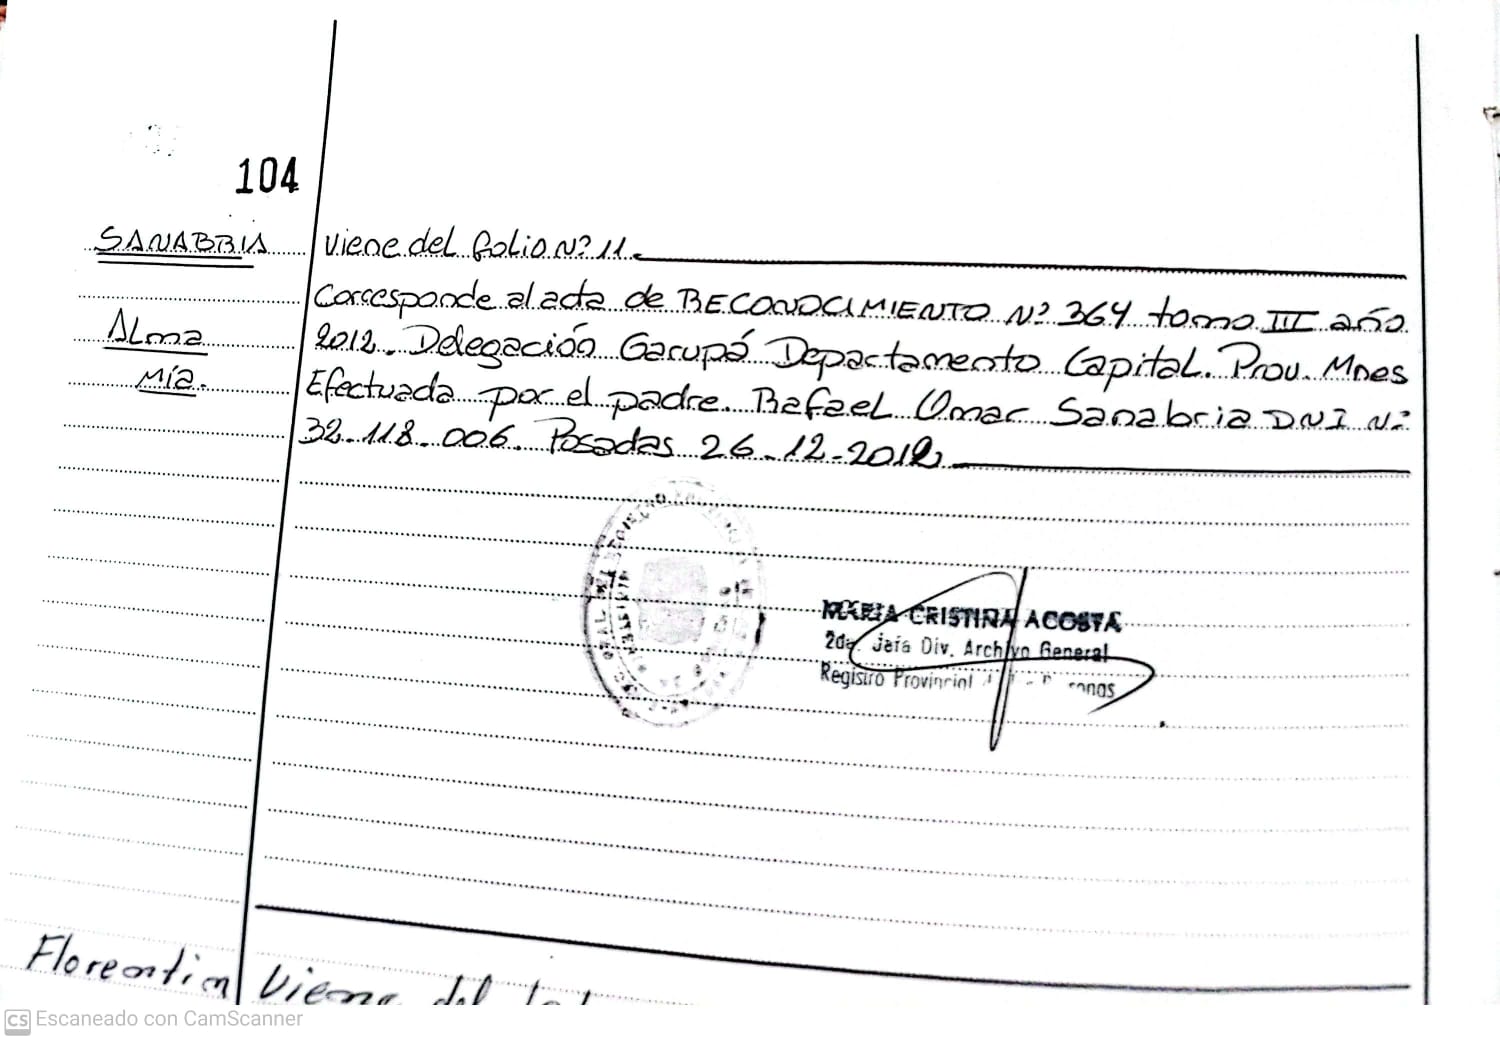 104
SANABRIA
Alma
Mía.
Viene del folio Nº 11.
Corresponde al acta de RECONOCIMIENTO Nº 364 tomo III año
2012. Delegación Garupá Departamento Capital. Prov. Mnes
Efectuada por el padre. Rafael Omar Sanabria DNI Nº
32.118.006. Posadas 26-12-2012
MARIA CRISTINA ACOSTA
2da. Jefa Div. Archivo General
Registro Provincial
Florentin Viene del
CS Escaneado con CamScanner